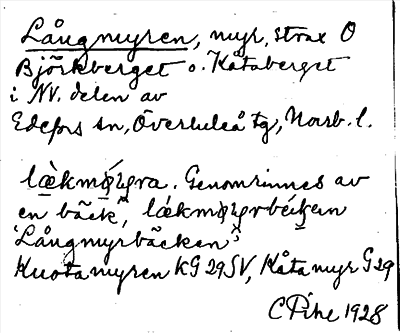 Långmyren, myr, strax O
Björkberget o. Kåtaberget
i NV. delen av
Edefors sn, Överluleå tg, Norrb. l.
Genomrinnes av
en bäck,
'Långmyrbäcken'
Kuotamyren KG 29 SV, Kåtamyr G 29
C Pihl 1928